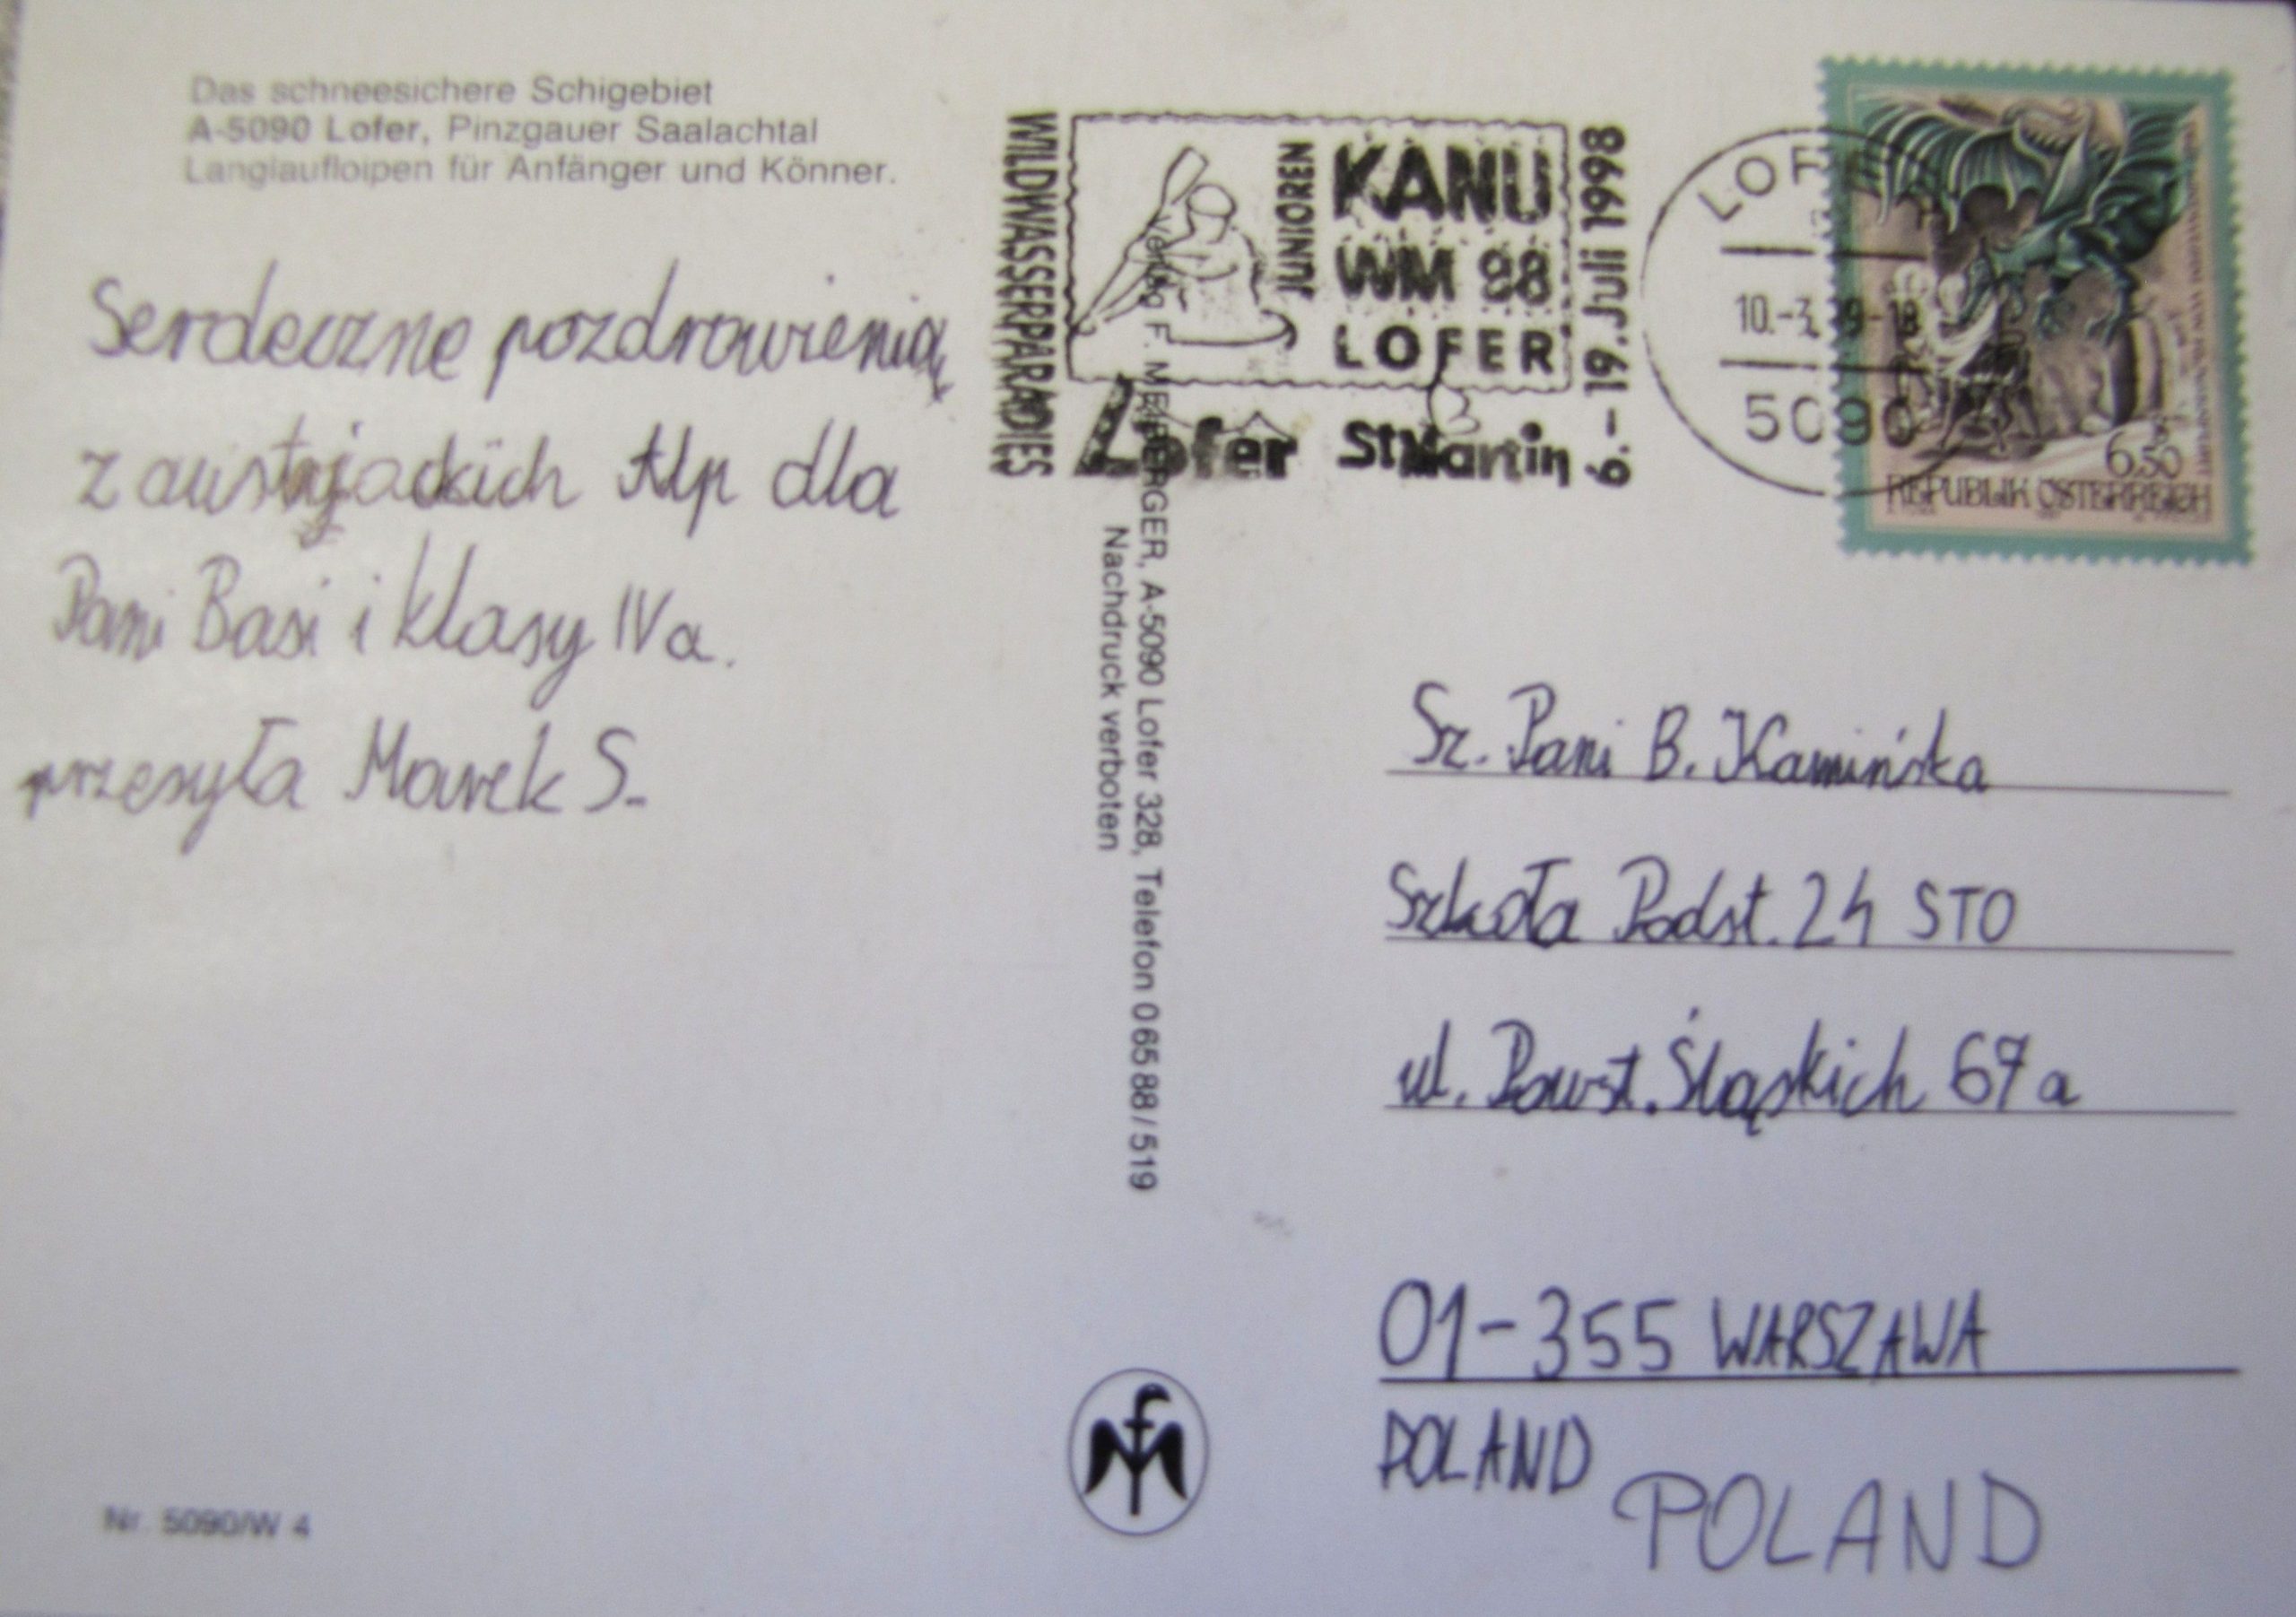 Das schneesichere Schigebiet
A-5090 Lofer, Pinzgauer Saalachtal
Langlaufloipen für Anfänger und Könner.
Serdeczne pozdrowienia,
z austryjackich Alp dla
Pani Basi i klasy IV a.
przesyła Marek S.
Nr. 5090/W 4
WILDWASSERPARADIES
JUNIOREN
KANU
WM 98
LOFER
9.-19. Juli 1998
Lofer St. Martin
Verlag F. MEIBERGER, A-5090 Lofer 328, Telefon 0 65 88 / 519
Nachdruck verboten
10.-3.
5090
6,50
REPUBLIK ÖSTERREICH
Sz. Pani B. Kamińska
Szkoła Podst. 24 STO
ul. Powst. Śląskich 67 a
01-355 WARSZAWA
POLAND
POLAND